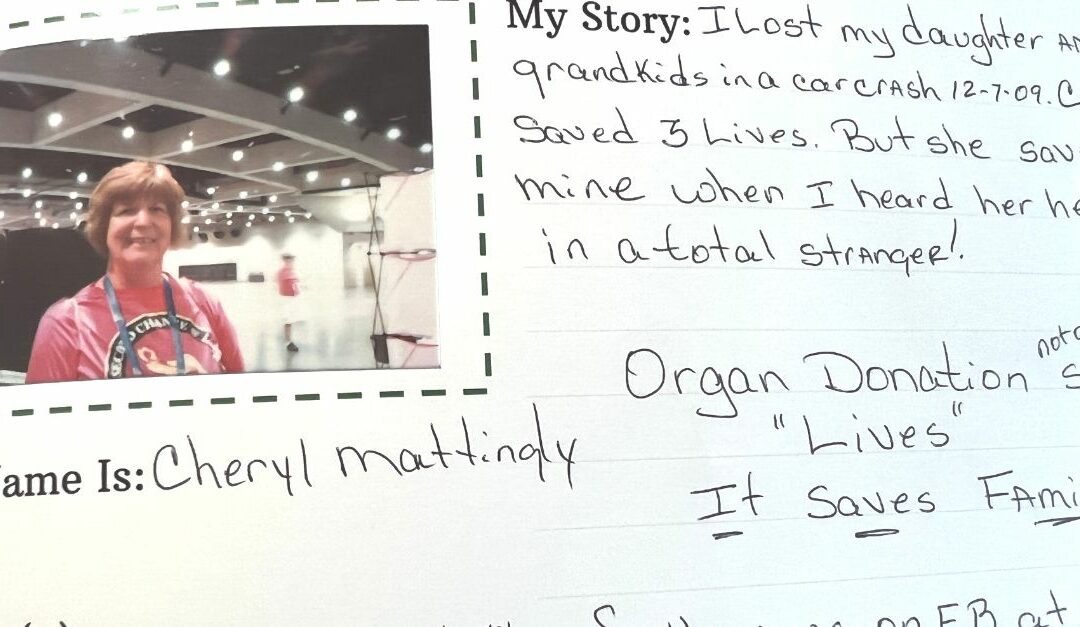 My Story: I Lost my daughter
grandkids in a car crash 12-7-09.
Saved 3 Lives. But she
mine when I heard her
in a total stranger!
Organ Donation
"Lives"
It Saves
ame Is: Cheryl mattingly
SECOND CHANCE
FB at